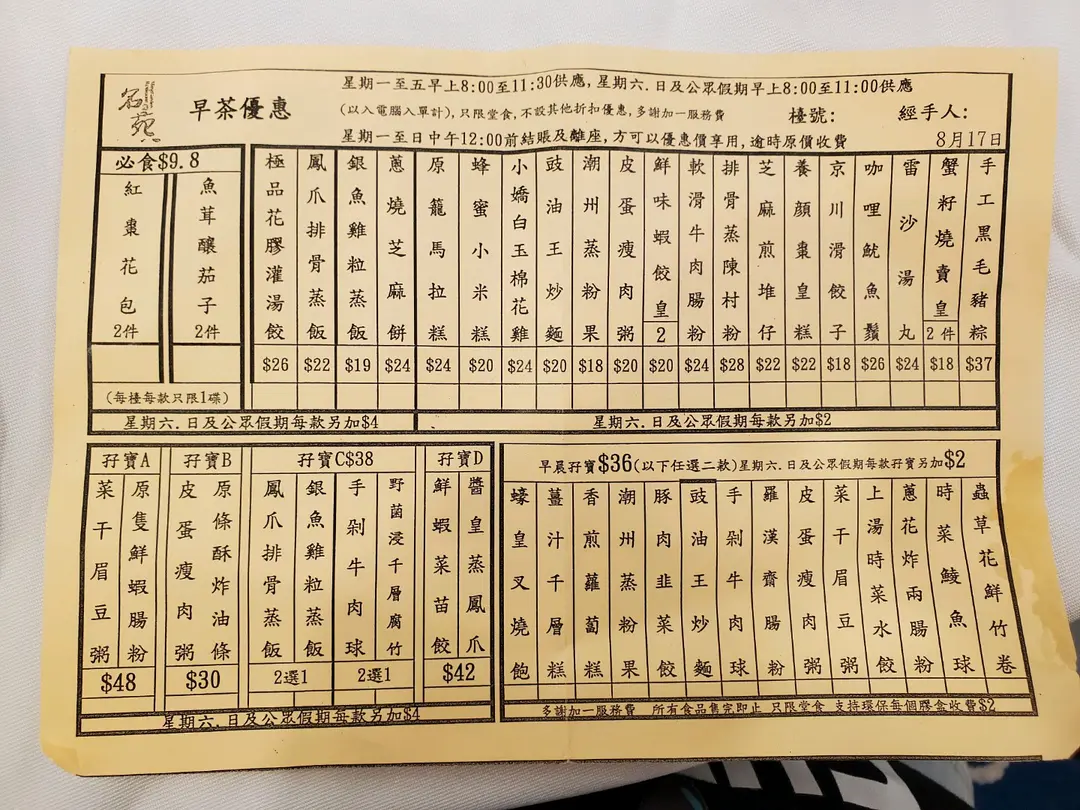 名苑
早茶優惠
星期一至五早上8:00至11:30供應, 星期六. 日及公眾假期早上8:00至11:00供應
(以入電腦入單計), 只限堂食, 不設其他折扣優惠, 多謝加一服務費
檯號:
經手人:
星期一至日中午12:00前結賬及離座, 方可以優惠價享用, 逾時原價收費
8月17日
必食$9.8
紅棗花包 2件
魚茸釀茄子 2件
(每檯每款只限1碟)
極品花膠灌湯餃 $26
鳳爪排骨蒸飯 $22
銀魚雞粒蒸飯 $19
蔥燒芝麻餅 $24
原籠馬拉糕 $24
蜂蜜小米糕 $20
小嬌白玉棉花雞 $24
豉油王炒麵 $20
潮州蒸粉果 $18
皮蛋瘦肉粥 $20
鮮味蝦餃皇 2 $20
軟滑牛肉腸粉 $24
排骨蒸陳村粉 $28
芝麻煎堆仔 $22
養顏棗皇糕 $22
京川滑餃子 $18
咖哩魷魚鬚 $26
雷沙湯丸 $24
蟹籽燒賣皇 2件 $18
手工黑毛豬粽 $37
星期六. 日及公眾假期每款另加$4
星期六. 日及公眾假期每款另加$2
孖寶A
菜干眉豆粥
原隻鮮蝦腸粉
$48
孖寶B
皮蛋瘦肉粥
原條酥炸油條
$30
孖寶C$38
鳳爪排骨蒸飯
銀魚雞粒蒸飯
2選1
手剁牛肉球
野菌浸千層腐竹
2選1
孖寶D
鮮蝦菜苗餃
醬皇蒸鳳爪
$42
星期六. 日及公眾假期每款另加$4
早晨孖寶$36(以下任選二款)星期六. 日及公眾假期每款孖寶另加$2
蠔皇叉燒飽
薑汁千層糕
香煎蘿蔔糕
潮州蒸粉果
豚肉韭菜餃
豉油王炒麵
手剁牛肉球
羅漢齋腸粉
皮蛋瘦肉粥
菜干眉豆粥
上湯時菜水餃
蔥花炸兩腸粉
時菜鯪魚球
蟲草花鮮竹卷
多謝加一服務費 所有食品售完即止 只限堂食 支持環保每個膠盒收費$2